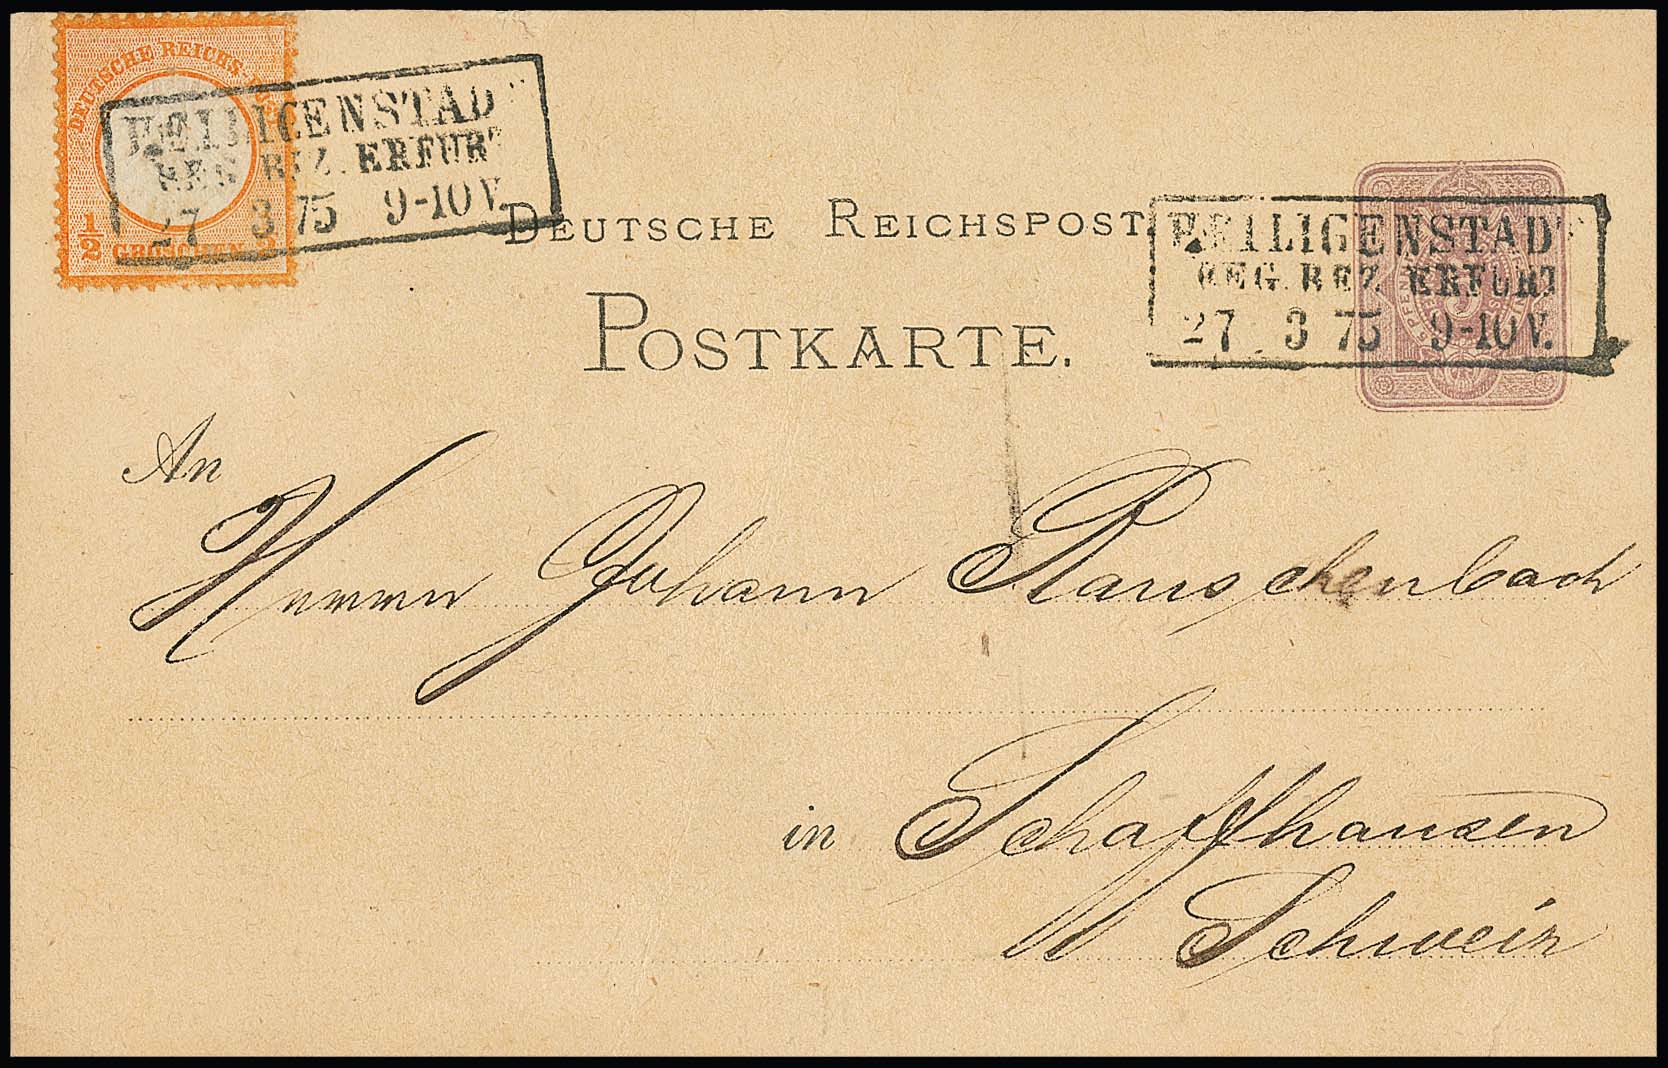 DEUTSCHE REICHS-POST
1/2 GROSCHEN 2
HEILIGENSTADT
REG. BEZ. ERFURT
27 3 75 9-10V.
DEUTSCHE REICHSPOST
HEILIGENSTADT
REG. BEZ. ERFURT
27 3 75 9-10V.
POSTKARTE.
An
Herrn Johann Rauschenbach
in Schaffhausen
Schweiz